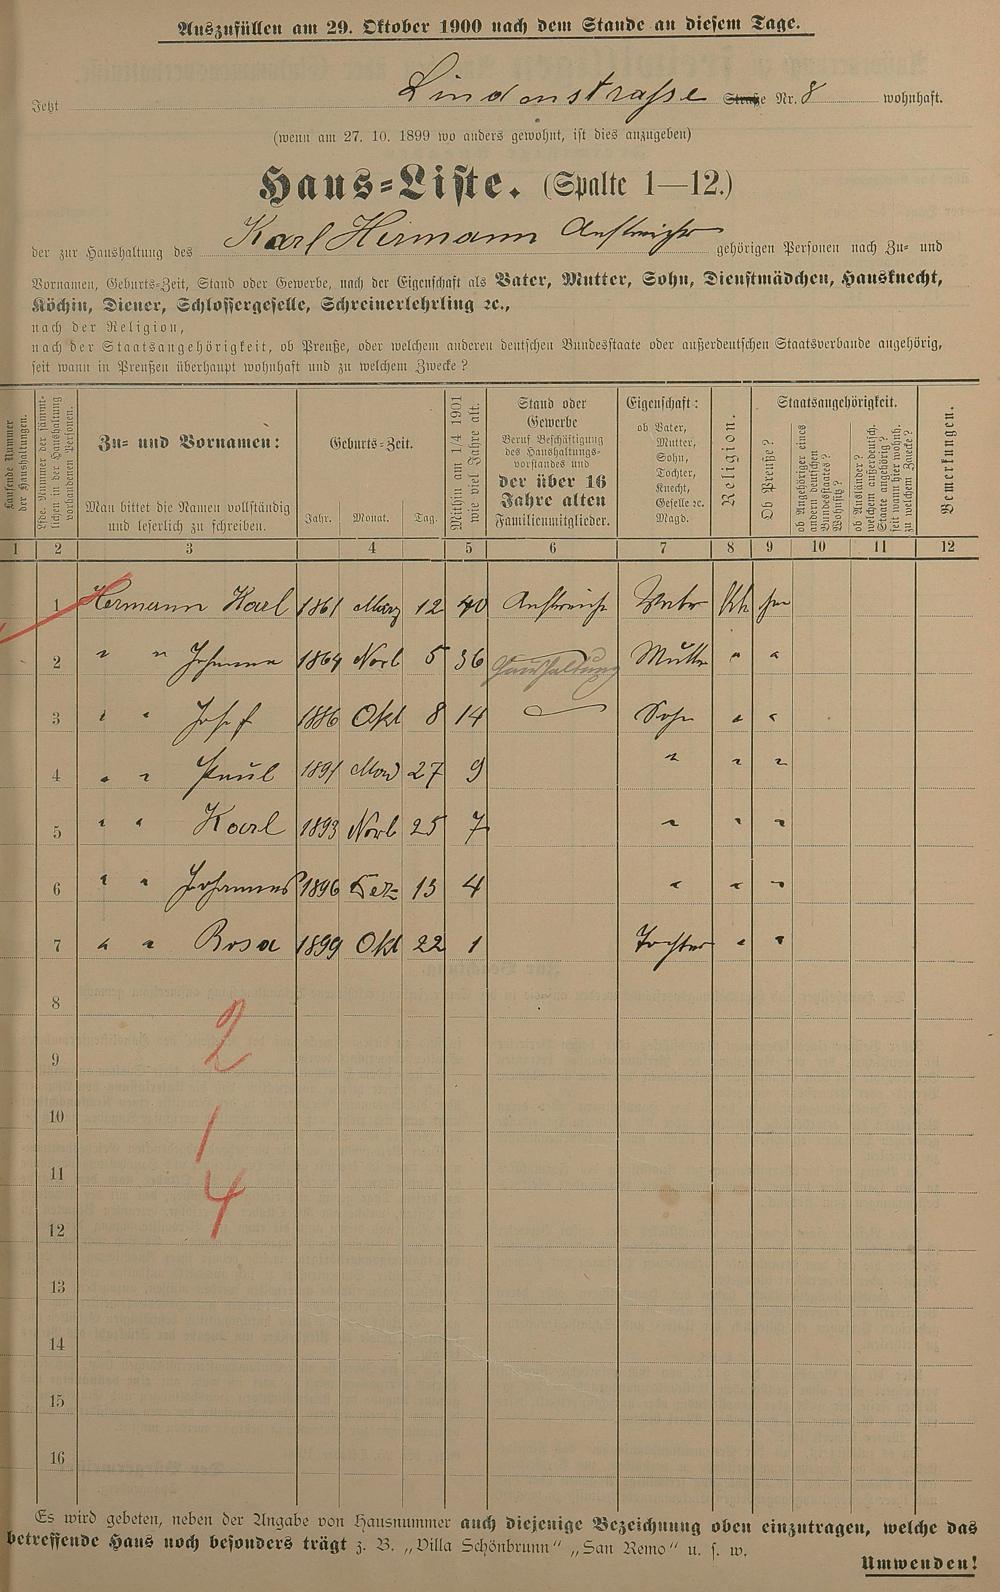 Auszufüllen am 29. Oktober 1900 nach dem Stande an diesem Tage.
Jetzt Lindenstrasse Straße Nr. 8 wohnhaft.
(wenn am 27. 10. 1899 wo anders gewohnt, ist dies anzugeben)
Haus-Liste. (Spalte 1—12.)
der zur Haushaltung des Karl Hermann Anstreicher gehörigen Personen nach Zu- und
Vornamen, Geburts-Zeit, Stand oder Gewerbe, nach der Eigenschaft als Vater, Mutter, Sohn, Dienstmädchen, Hausknecht,
Köchin, Diener, Schlossergeselle, Schreinerlehrling ꝛc.,
nach der Religion,
nach der Staatsangehörigkeit, ob Preuße, oder welchem anderen deutschen Bundesstaate oder außerdeutschen Staatsverbande angehörig,
seit wann in Preußen überhaupt wohnhaft und zu welchem Zwecke?
Laufende Nummer der Haushaltungen.
Lfde. Nummer der sämmtlichen in der Haushaltung vorhandenen Personen.
Zu- und Vornamen:
Man bittet die Namen vollständig
und leserlich zu schreiben.
Geburts-Zeit.
Jahr. Monat. Tag.
Mithin am 1/4 1901
wie viel Jahre alt.
Stand oder
Gewerbe
Beruf Beschäftigung
des Haushaltungs-
vorstandes und
der über 16
Jahre alten
Familienmitglieder.
Eigenschaft:
ob Vater,
Mutter,
Sohn,
Tochter,
Knecht,
Geselle ꝛc.
Magd.
Religion.
Staatsangehörigkeit.
Ob Preuße?
ob Angehöriger eines
andern deutschen
Bundesstaates?
Wohnsitz?
ob Ausländer?
welchem außerdeutsch.
Staate angehörig?
seit wann hier wohnh.
zu welchem Zwecke?
Bemerkungen.
1 2 3 4 5 6 7 8 9 10 11 12
1 Hermann Karl 1861 März 12 40 Anstreicher Vater Kth
2 " " Johanna 1864 Novb 5 36 Haushaltung Mutter " "
3 " " Josef 1886 Okt 8 14 Sohn " "
4 " " Paul 1891 27 9 " " "
5 " " Karl 1893 Novb 25 7 " " "
6 " " Johannes 1896 Dez 13 4 " " "
7 " " Rosa 1899 Okt 22 1 Tochter " "
8
2
9
10
1
11
4
12
13
14
15
16
Es wird gebeten, neben der Angabe von Hausnummer auch diejenige Bezeichnung oben einzutragen, welche das
betreffende Haus noch besonders trägt z. B. „Villa Schönbrunn“ „San Remo“ u. s. w.
Umwenden!